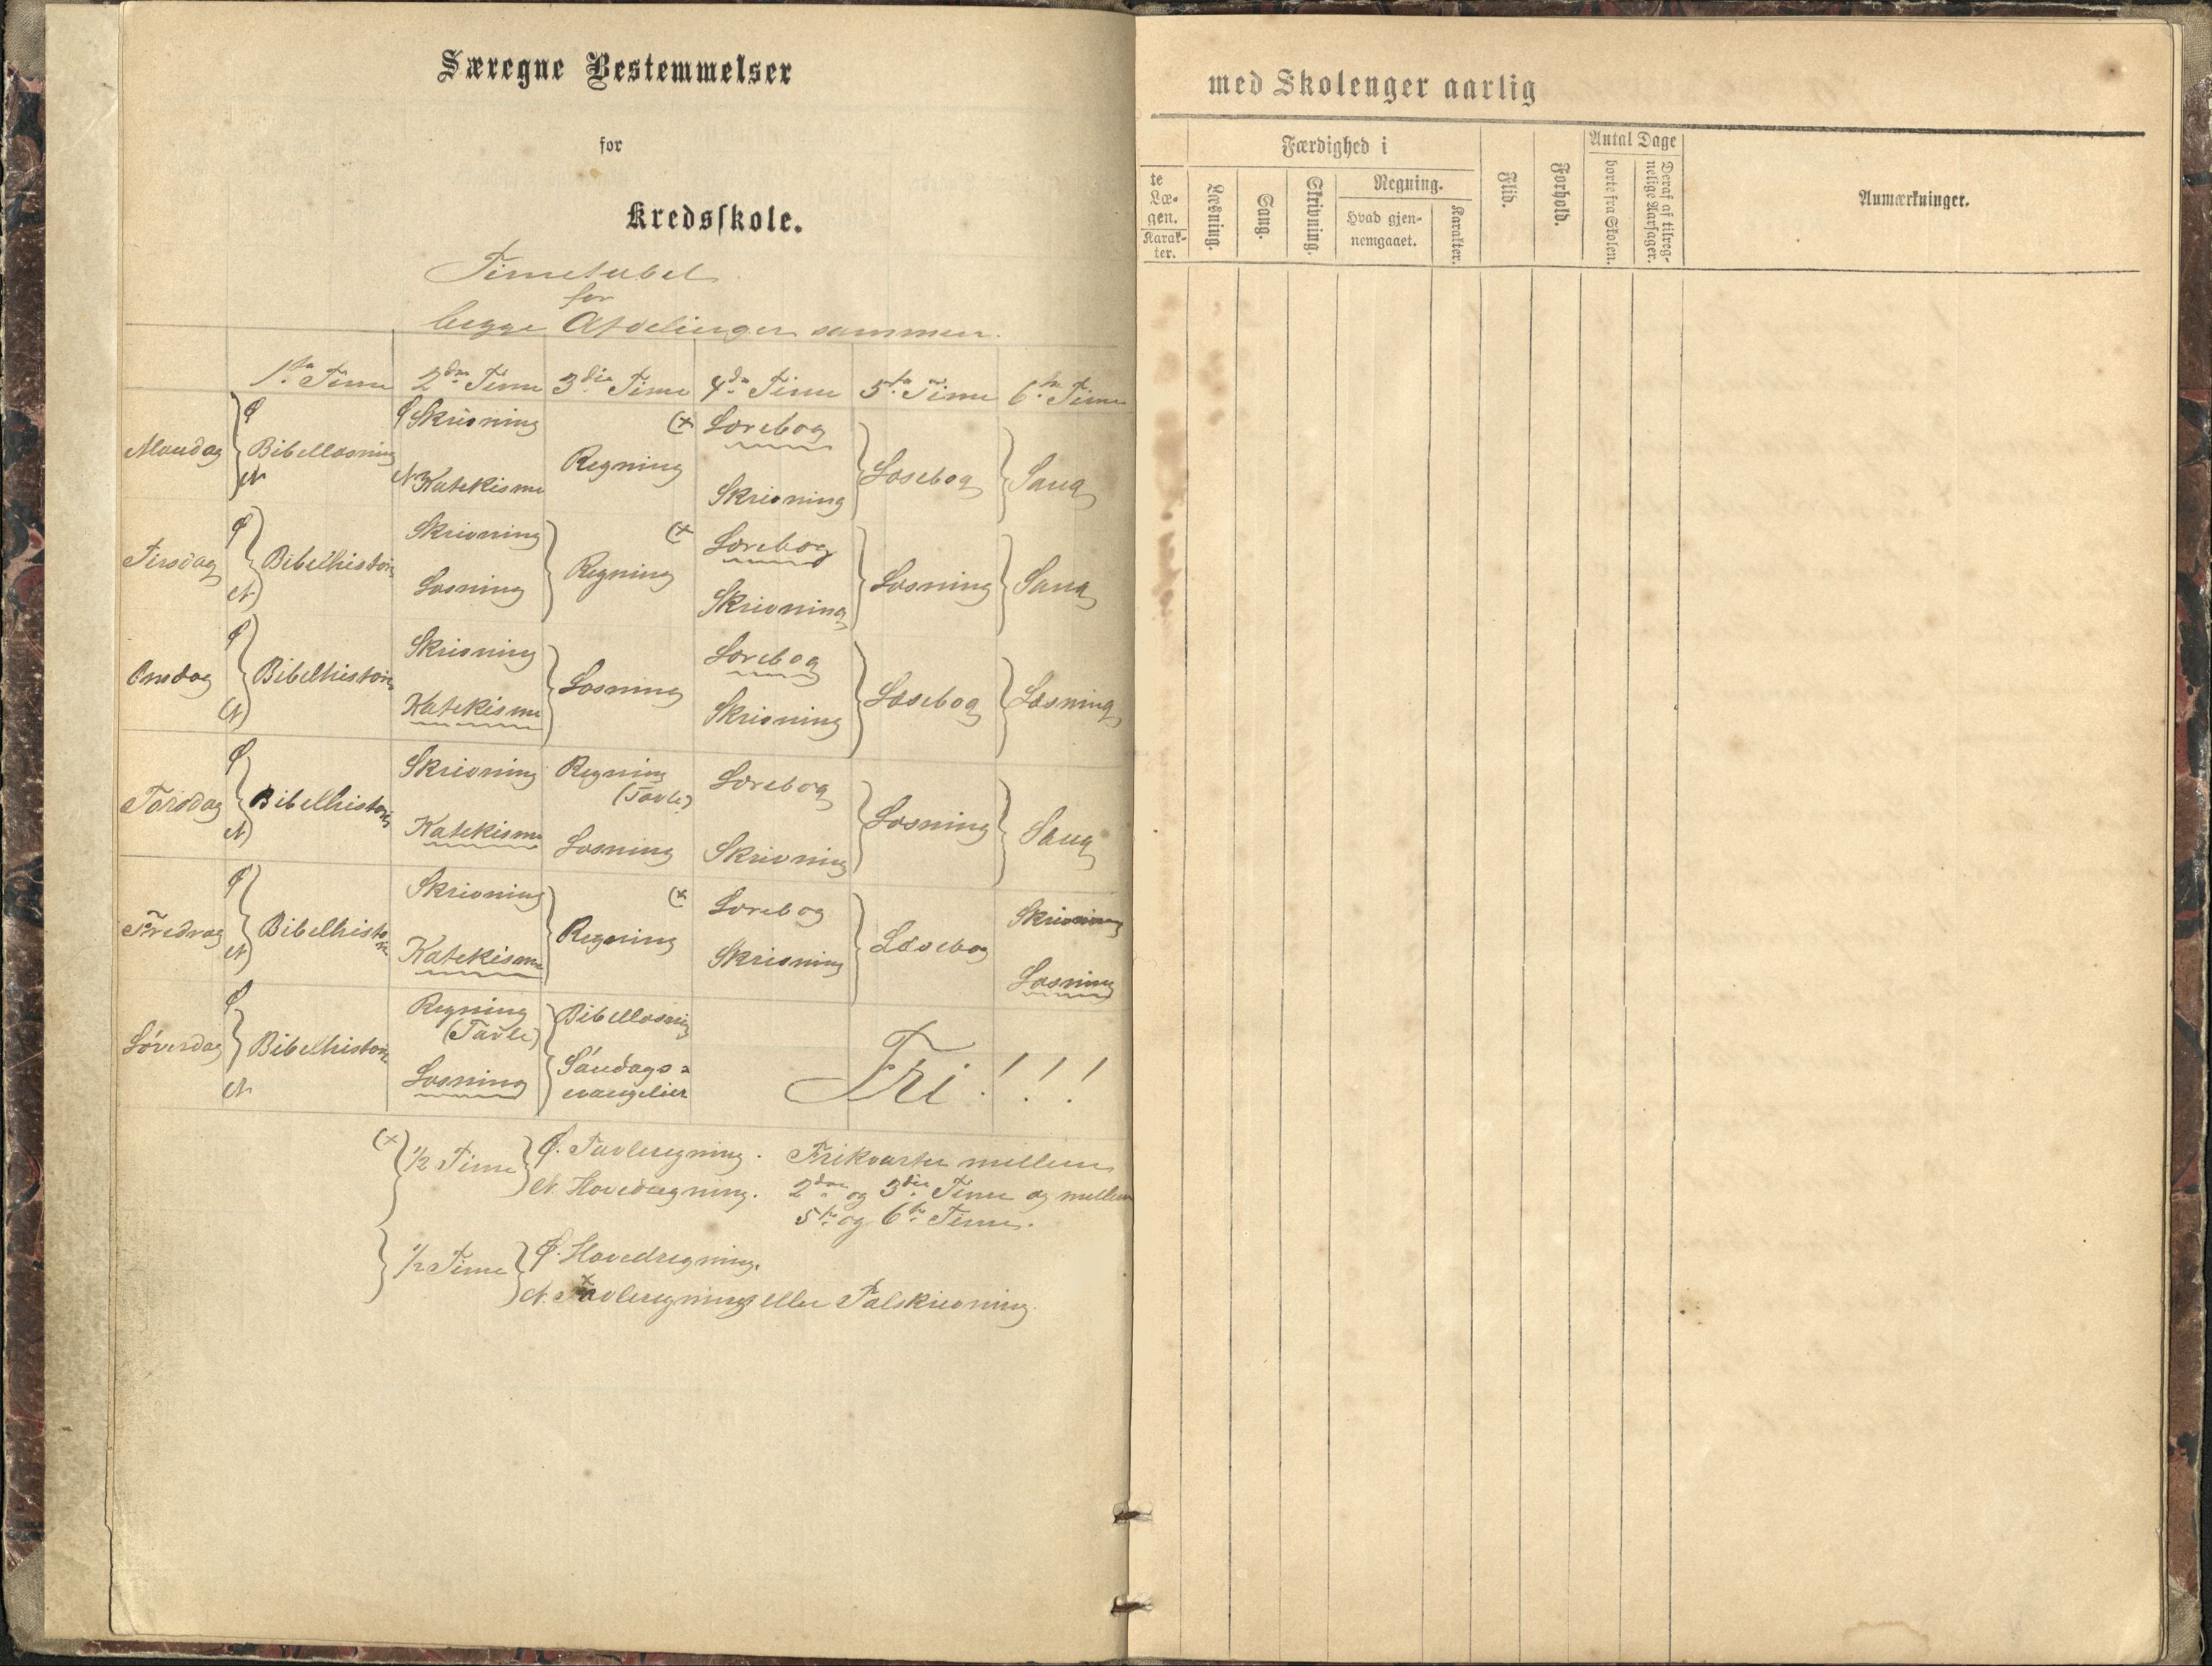 Særegne Bestemmelser
for
Kredsskole.
Timetabel
for
begge Afdelinger sammen.
1ste Time 2den Time 3die Time 4de Time 5te Time 6te Time
Mandag
Ø
N
Bibellæsning
Ø Skrivning
N Katekisme
Regning
(x
Lærebog
Skrivning
Læsebog
Sang
Tirsdag
Ø
N
Bibelhistorie
Skrivning
Læsning
Regning
(x
Lærebog
Skrivning
Læsning
Sang
Onsdag
Ø
N
Bibelhistorie
Skrivning
Katekisme
Læsning
Lærebog
Skrivning
Læsebog
Læsning
Torsdag
Ø
N
Bibelhistorie
Skrivning
Katekisme
Regning
(Tavle)
Læsning
Lærebog
Skrivning
Læsning
Sang
Fredag
Ø
N
Bibelhistorie
Skrivning
Katekisme
Regning
(x
Lærebog
Skrivning
Læsebog
Skrivning
Læsning
Løverdag
Ø
N
Bibelhistorie
Regning
(Tavle)
Læsning
Bibellæsning
Søndags=
evangelier
Fri!!!
(x) 1/2 Time
Ø. Tavleregning.
N. Hovedregning.
Frikvarter mellem
2den og 3die Time og mellem
5te og 6te Time.
1/2 Time
Ø. Hovedregning.
N. Tavleregning eller Talskrivning
med Skolenger aarlig
te
Læ-
gen.
Karak-
ter.
Færdighed i
Læsning.
Sang.
Skrivning.
Regning.
Hvad gjen-
nemgaaet.
Karakter.
Flid.
Forhold.
Antal Dage
borte fra Skolen.
Deraf af tilreg-
nelige Aarsager.
Anmærkninger.